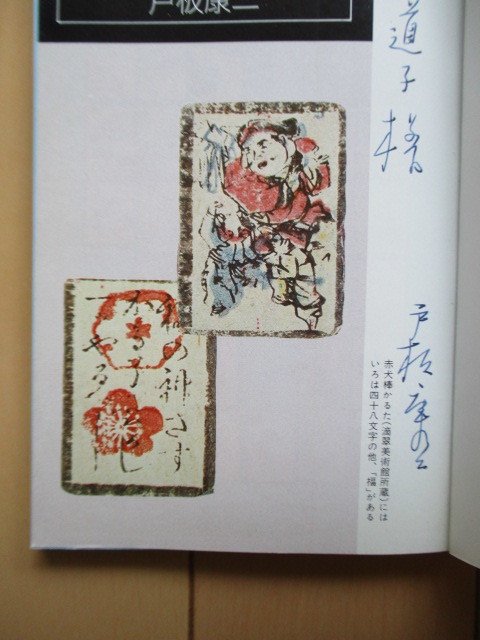 戸板康二
道子様
戸板康二
赤犬棒かるた(滴翠美術館所蔵)には
いろは四十八文字の他、「福」がある
福の神さす